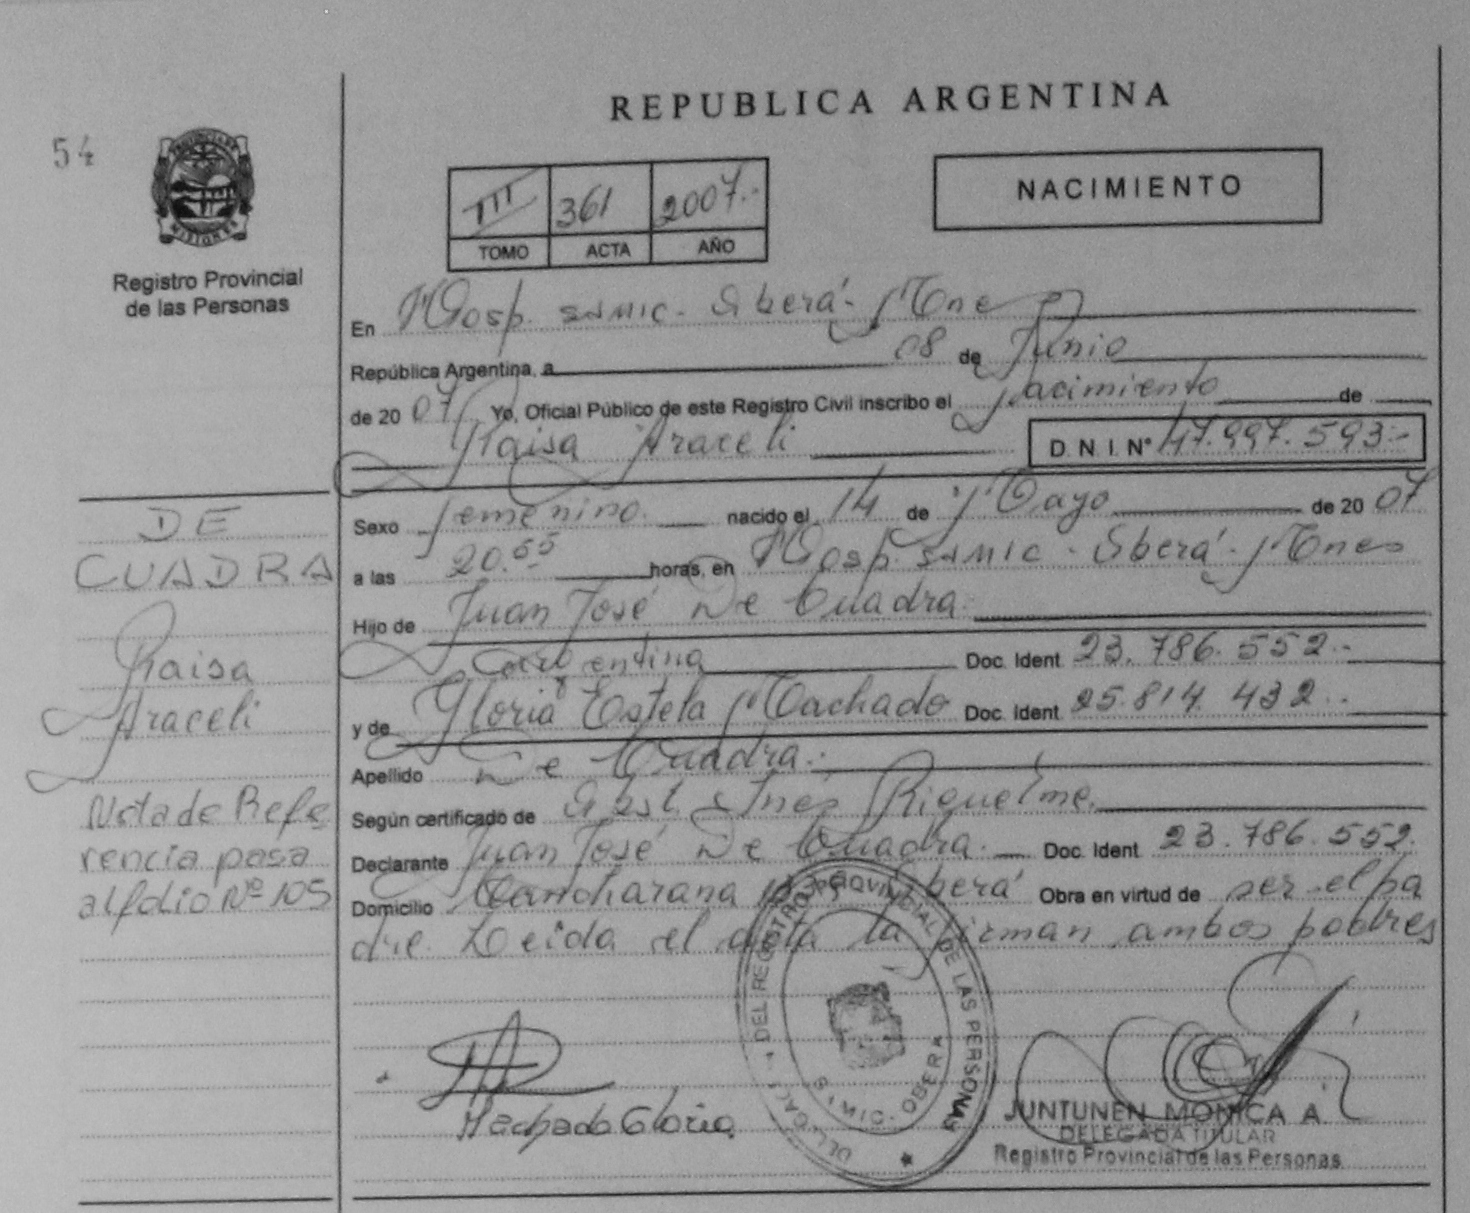 54
REPUBLICA ARGENTINA
PROVINCIA DE MISIONES
Registro Provincial
de las Personas
III 361 2007.-
TOMO ACTA AÑO
NACIMIENTO
En Hosp. SAMIC. Oberá- Mnes
República Argentina, a 08 de Junio
de 2007 Yo, Oficial Público de este Registro Civil inscribo el Nacimiento de
Raisa Araceli D. N. I. Nº 47.997.593.-
Sexo femenino. nacido el 14 de Mayo de 2007
a las 20.55 horas, en Hosp. SAMIC. Oberá- Mnes
Hijo de Juan José De Cuadra.
Argentina Doc. Ident 23.786.552.-
y de Gloria Estela Machado Doc. Ident 25.814.432.-
Apellido De Cuadra.-
Según certificado de Obst. Ines Riquelme.
Declarante Juan José De Cuadra.- Doc. Ident 23.786.552.
Domicilio Oberá Obra en virtud de ser el pa
dre. Leida el acta la firman ambos padres
DE
CUADRA
Raisa
Araceli
Nota de Refe
rencia pasa
al folio Nº 105
Machado Gloria
DEL REGISTRO PROVINCIAL DE LAS PERSONAS
SAMIC. OBERA
JUNTUNEN MONICA A
DELEGADA TITULAR
Registro Provincial de las Personas